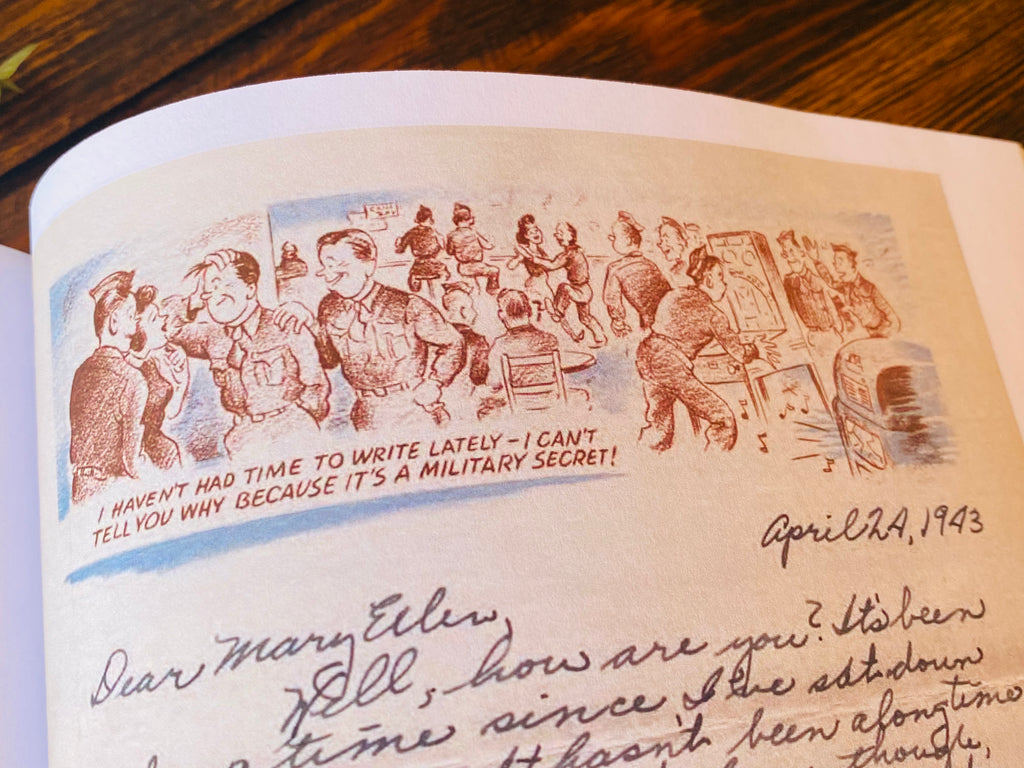 I HAVEN'T HAD TIME TO WRITE LATELY – I CAN'T
TELL YOU WHY BECAUSE IT'S A MILITARY SECRET!
April 24, 1943
Dear Mary Ellen,
Well, how are you? It's been
time since I've sat down
It hasn't been a long time
though,